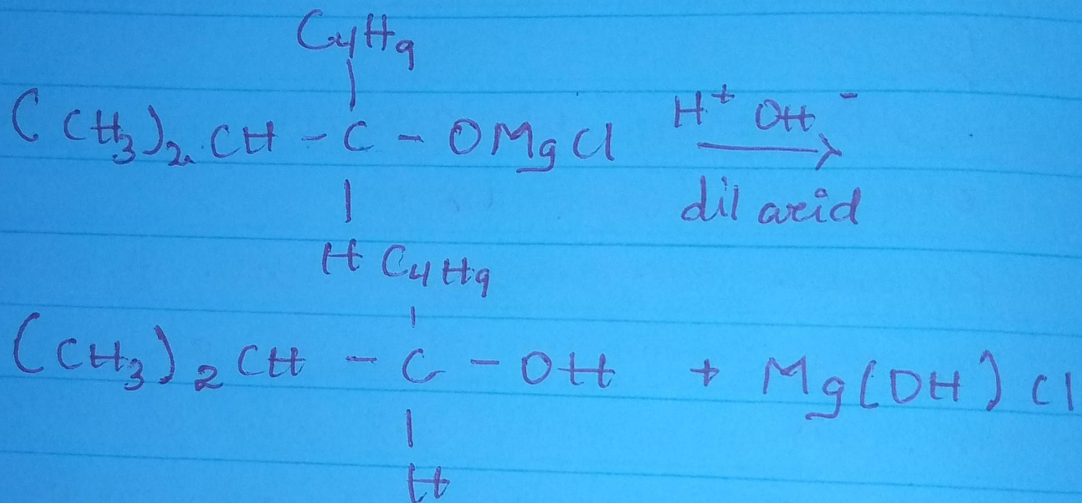 C4H9
|
(CH3)2 CH - C - OMgCl H+ OH- →
| dil acid
H C4H9
|
(CH3)2 CH - C - OH + Mg(OH) Cl
|
H